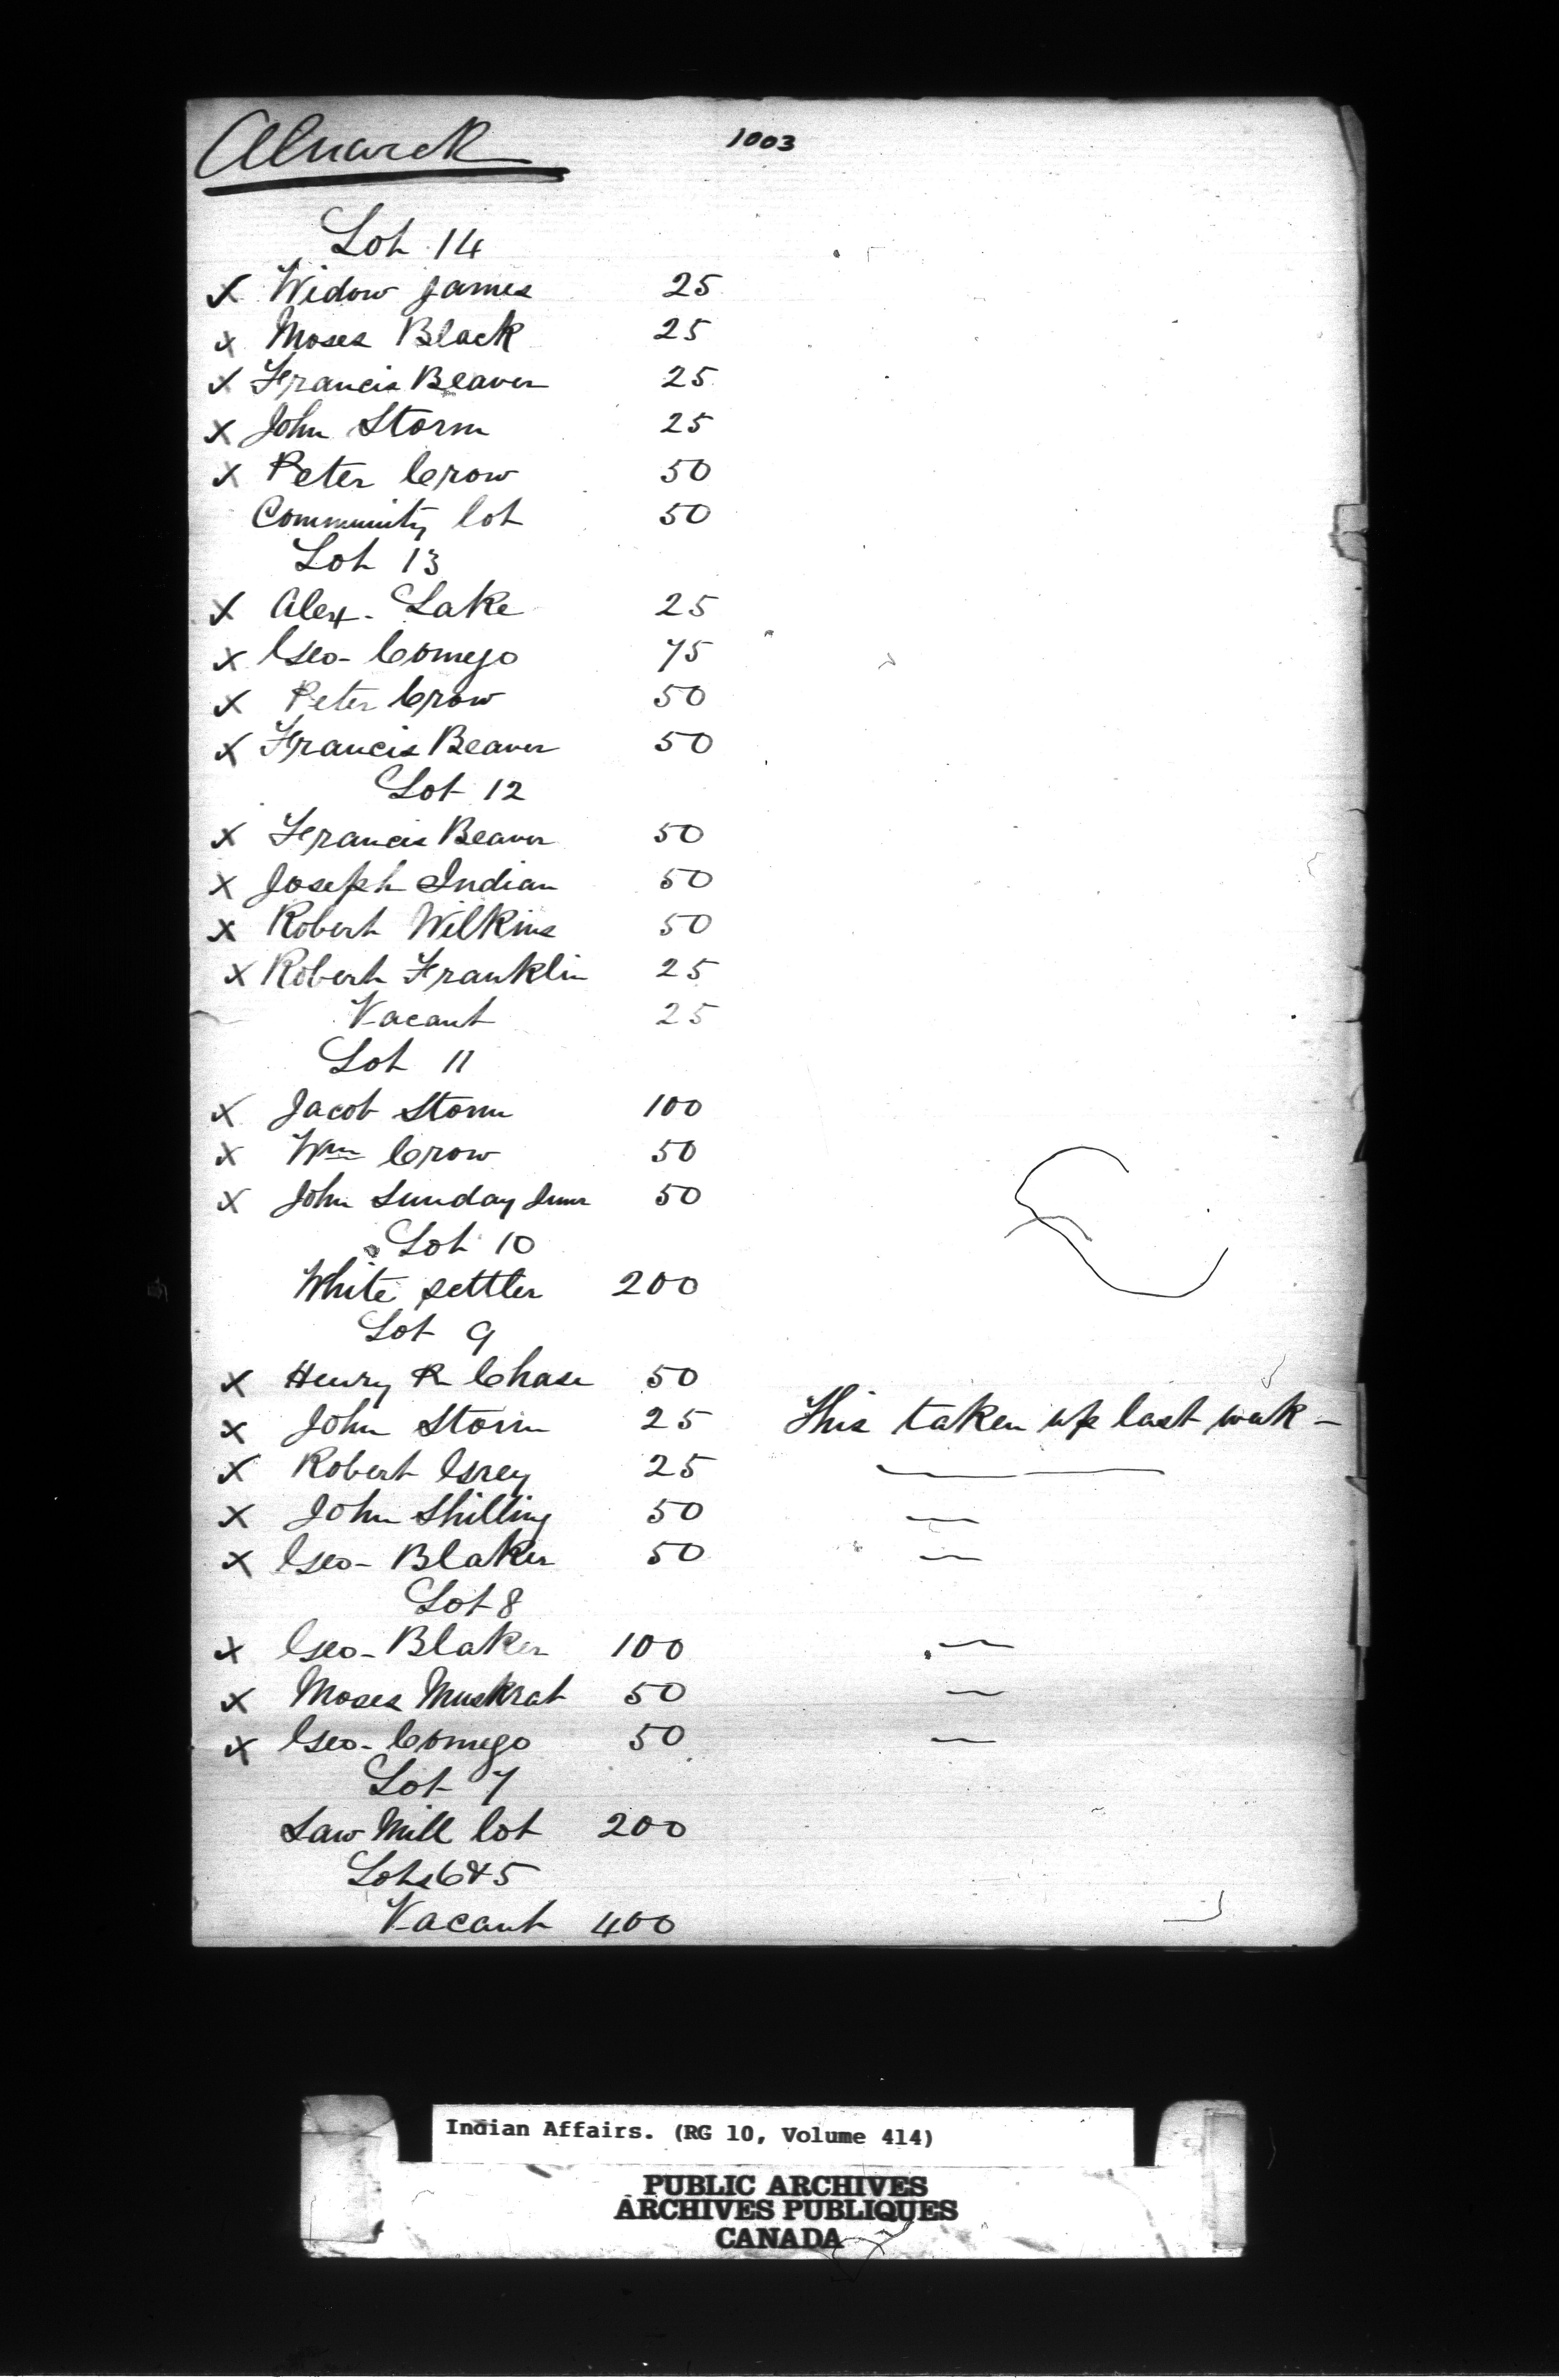 Alnwick
1003
Lot 14
x Widow James 25
x Moses Black 25
x Francis Beaver 25
x John Storm 25
x Peter Crow 50
Community lot 50
Lot 13
x Alex. Lake 25
x Geo- Comego 75
x Peter Crow 50
x Francis Beaver 50
Lot 12
x Francis Beaver 50
x Joseph Indian 50
x Robert Wilkins 50
x Robert Franklin 25
Vacant 25
Lot 11
x Jacob Storm 100
x Wm Crow 50
x John Sunday Junr 50
Lot 10
White settler 200
Lot 9
x Henry R Chase 50
x John Storm 25 This taken up last week -
x Robert Grey 25 — —
x John Shilling 50 —
x Geo- Blaker 50 —
Lot 8
x Geo- Blaker 100 —
x Moses Muskrat 50 —
x Geo- Comego 50 —
Lot 7
Saw Mill lot 200
Lots 6 & 5
Vacant 400
Indian Affairs. (RG 10, Volume 414)
PUBLIC ARCHIVES
ARCHIVES PUBLIQUES
CANADA